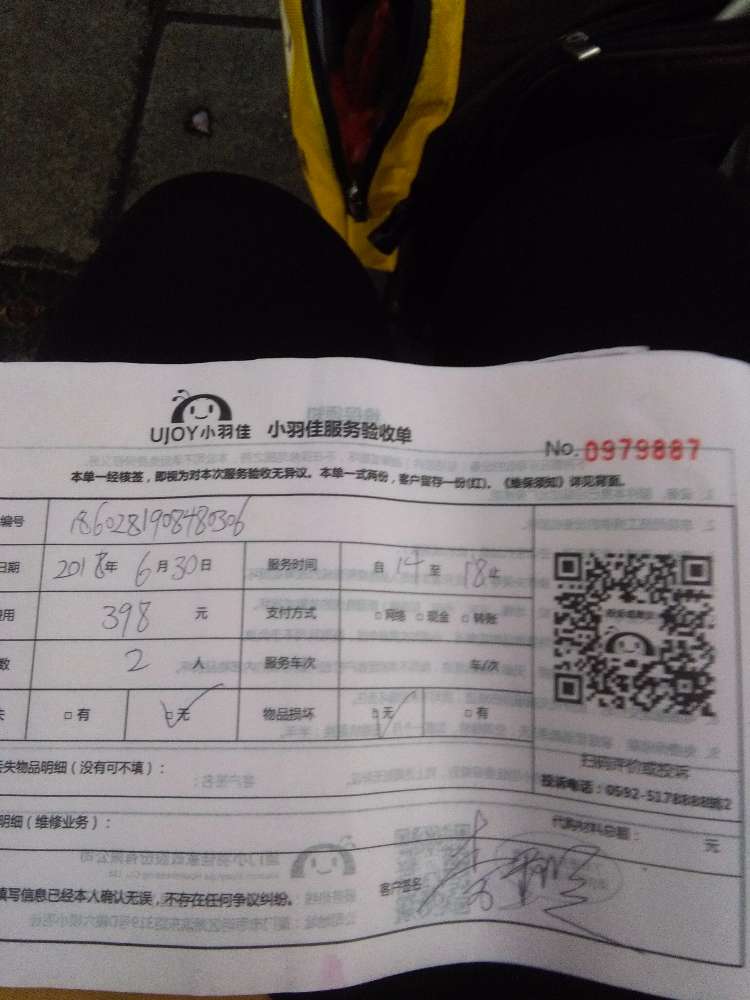 UJOY小羽佳 小羽佳服务验收单
No. 0979887
本单一经核签，即视为对本次服务验收无异议。本单一式两份，客户留存一份(红)。《维保须知》详见背面。
编号 1860281908480306
日期 2018年 6月30日 服务时间 自 14 至 18
费用 398 元 支付方式 □网络 □现金 □转账
数 2 人 服务车次 车/次
失 □有 □无 物品损坏 □无 □有
扫码评价或投诉
丢失物品明细（没有可不填）：
投诉电话：0592-5178888转2
明细（维修业务）： 代购材料总额： 元
填写信息已经本人确认无误，不存在任何争议纠纷。 客户签名